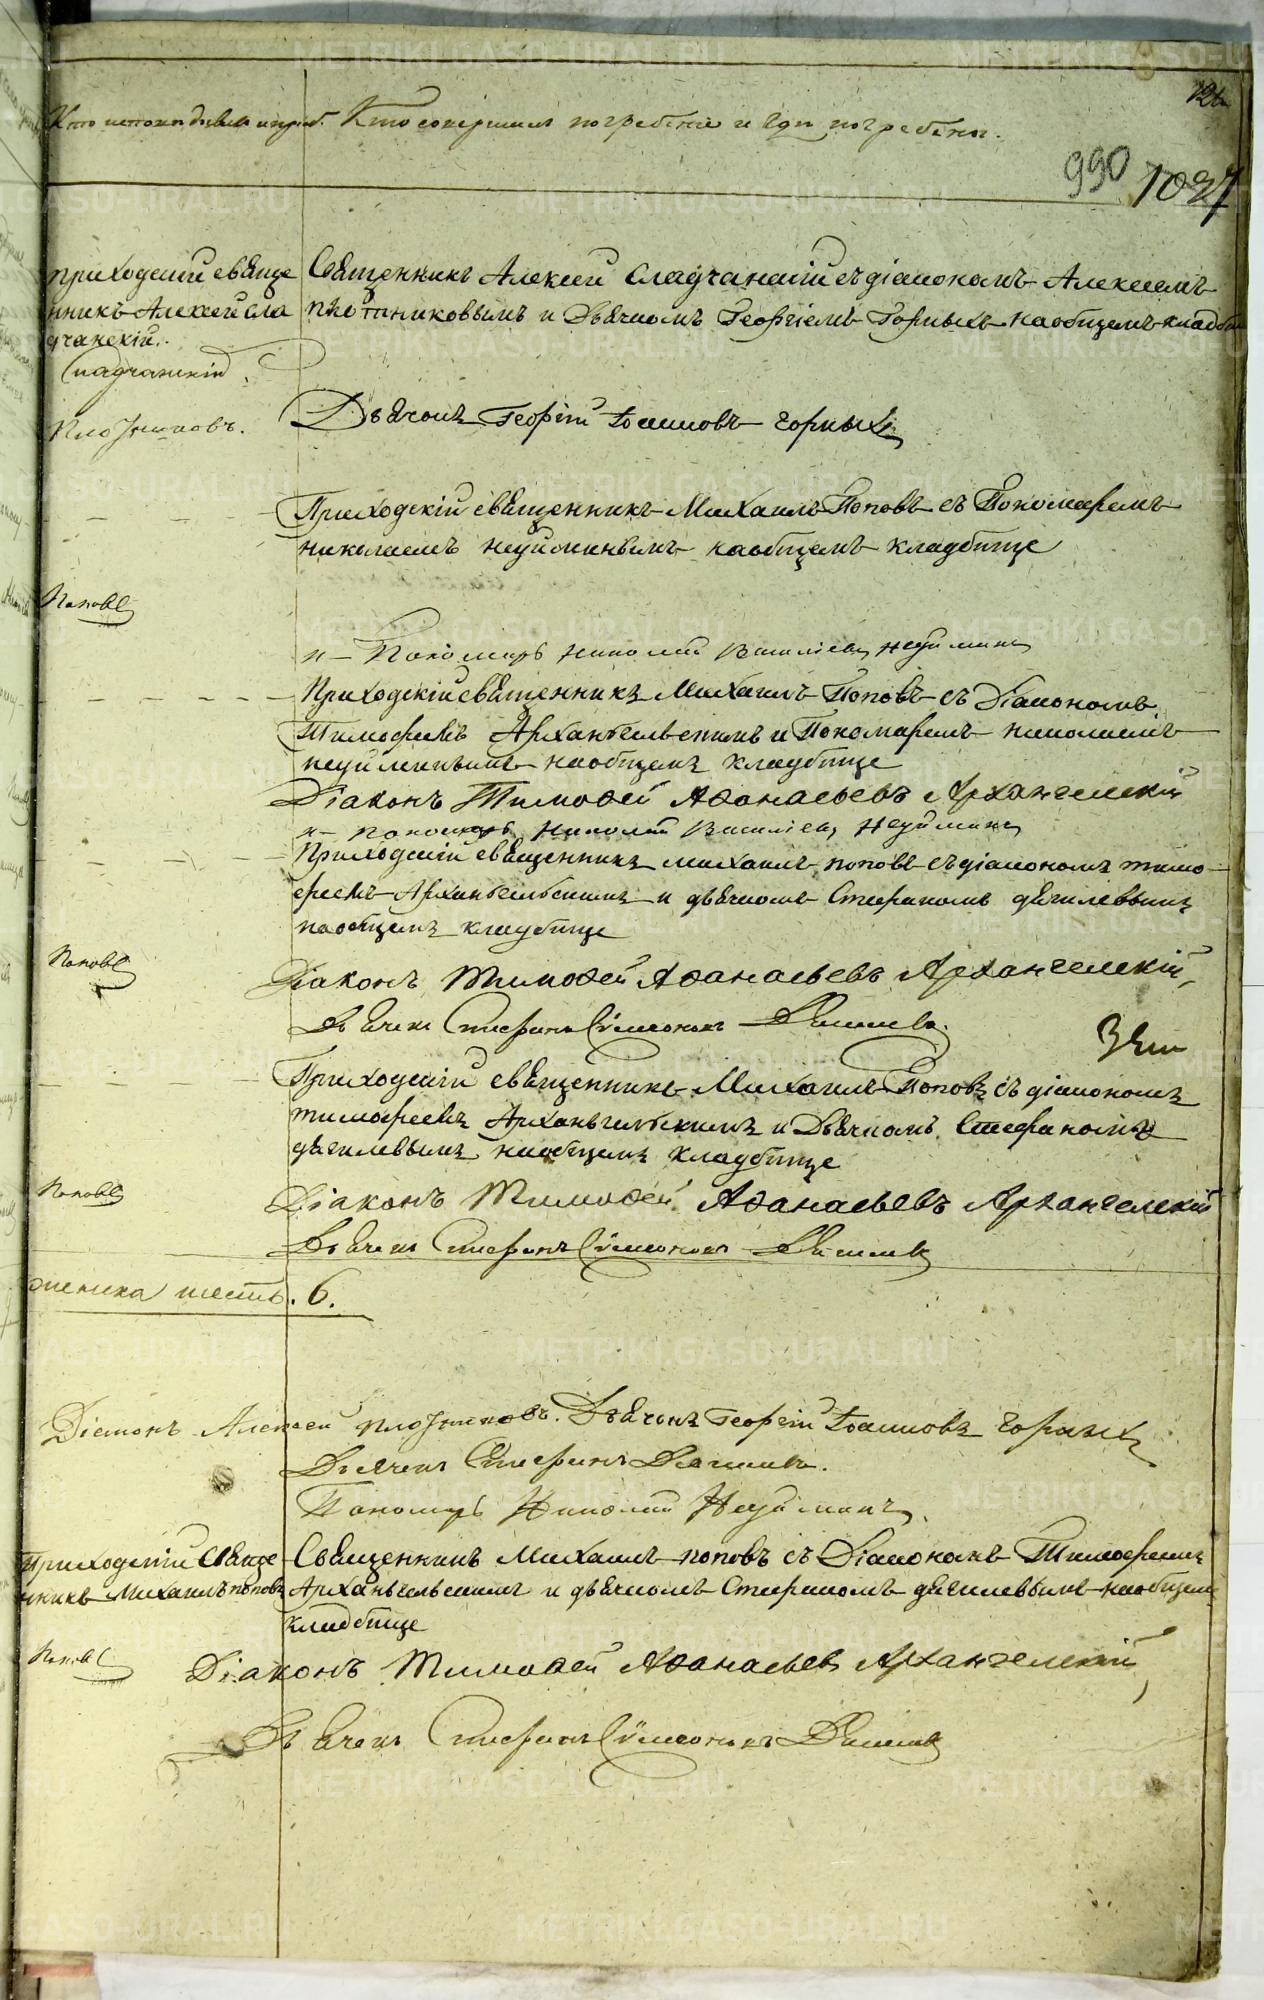 126
Кто исповѣдывалъ и приоб. Кто совершалъ погребеніе и гдѣ погребены.
990 1027
приходскій свѣще Свѣщенникъ Алексѣй Сладчанскій съ діакономъ Алексеемъ
нникъ Алексей сла плотниковымъ и Дьячкомъ Георгіемъ Горныхъ на общемъ кладби
дчанскій.
Сладчанскій
Плотниковъ. Дьячокъ Георгій Іоанновъ Горныхъ
Приходскій свѣщенникъ Михаилъ Поповъ съ Пономаремъ
николаемъ неуйминымъ на общемъ кладбище
Поповъ
и Пономарь Николай Василіевъ Неуйминъ
Приходскій свѣщенникъ Михаилъ Поповъ съ Діакономъ
Тимофеемъ Архангельскимъ и Пономаремъ николаемъ
неуйминымъ на общемъ кладбище
Діаконъ Тимоѳей Аѳанасьевъ Архангелскій
и пономарь Николай Василіевъ Неуйминъ
Приходскій свѣщенникъ михаилъ поповъ съ діакономъ тимо
феемъ Архангельскимъ и дьячкомъ Стефаномъ дягилевымъ
на общемъ кладбище
Поповъ
Діаконъ Тимоѳей Аѳанасьевъ Архангелскій
Дьячекъ Стефанъ Сѵмеоновъ Дягилевъ.
Приходскій свѣщенникъ Михаилъ Поповъ съ діакономъ
тимофеемъ Архангельскимъ и Дьячкомъ Стефаномъ
дягилевымъ на общемъ кладбище
Поповъ
Діаконъ Тимоѳей Аѳанасьевъ Архангелскій
Дьячекъ Стефанъ Сѵмеоновъ Дягилевъ
женска шесть. 6.
Діаконъ Алексей Плотниковъ. Дьячокъ Георгій Іоанновъ Горныхъ
Дьячекъ Стефанъ Дягилевъ.
Пономарь Николай Неуйминъ
Приходскій Свѣще Свѣщенникъ Михаилъ поповъ съ Діакономъ Тимофеемъ
нникъ Михаилъ поповъ Архангельскимъ и дьячкомъ Стефаномъ дягилевымъ на общемъ
кладбище
Поповъ
Діаконъ Тимоѳей Аѳанасьевъ Архангелскій
Дьячекъ Стефанъ Сѵмеоновъ Дягилевъ
METRIKI.GASO-URAL.RU